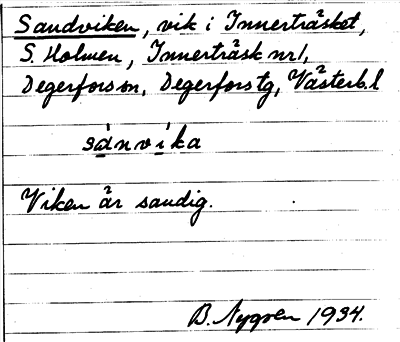 Sandviken, vik i Innerträsket,
S. Holmen, Innerträsk nr 1,
Degerfors sn, Degerfors tg, Västerb. l
sànvìka
Viken är sandig.
B. Nygren 1934.